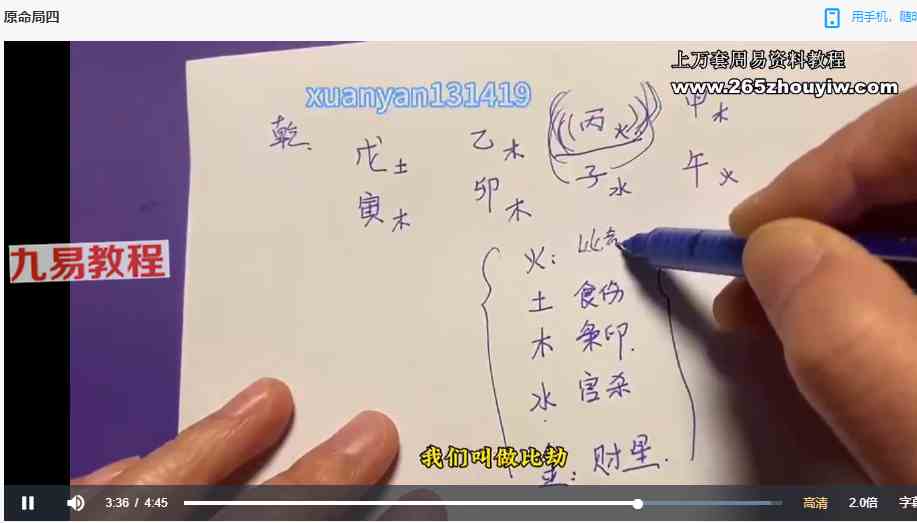 原命局四
用手机，随时
上万套周易资料教程
www.265zhouyiw.com
xuanyan131419
乾、 戊土 乙木 丙火 甲木
寅木 卯木 子水 午火
九易教程
火：比劫
土 食伤
木 枭印
水 官杀
金：财星
我们叫做比劫
3:36 / 4:45 高清 2.0倍 字幕